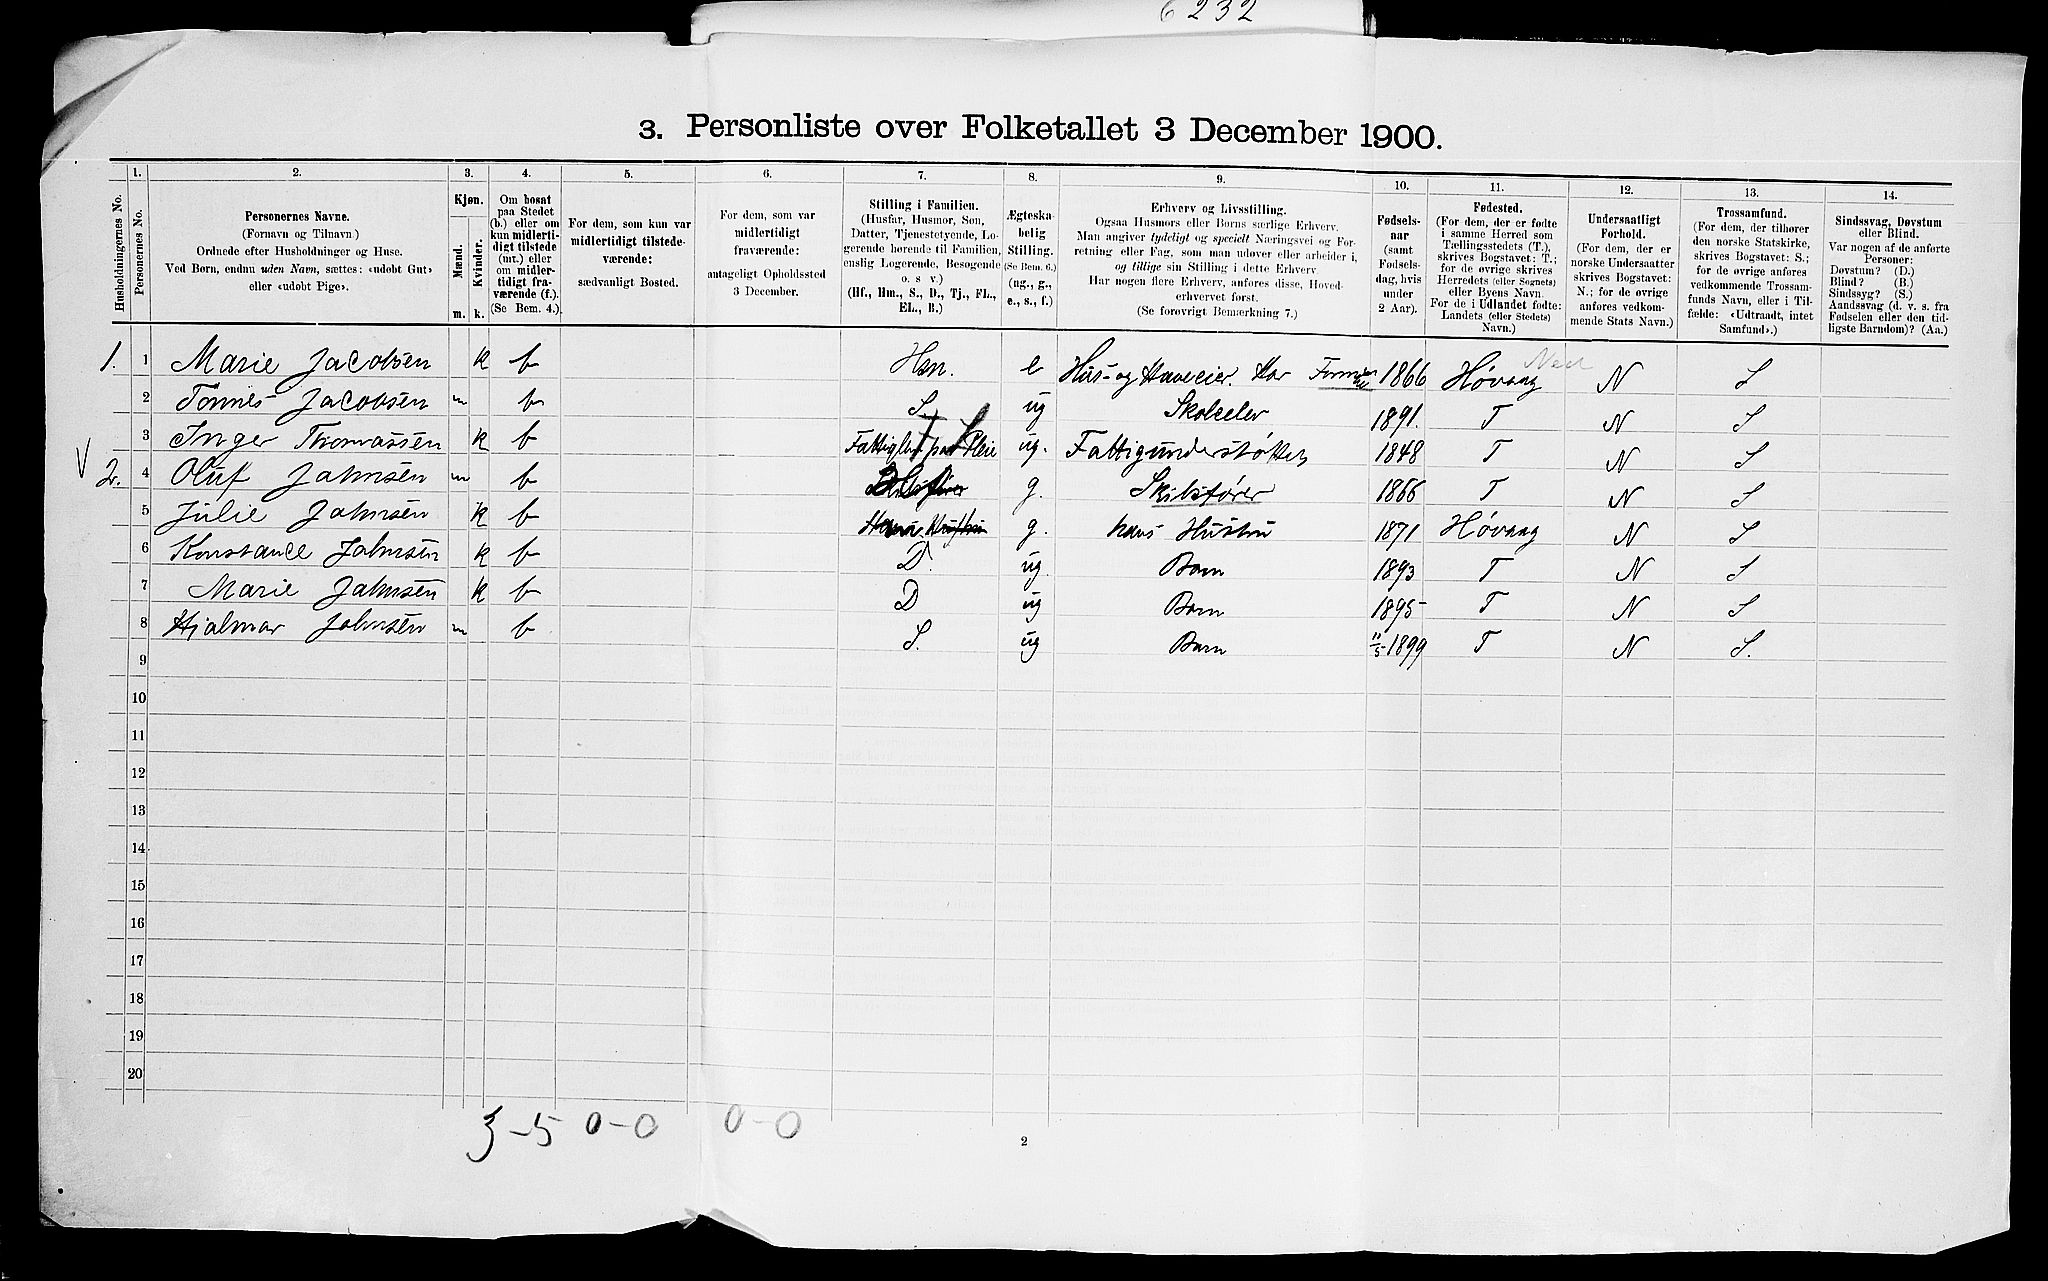 6232
3. Personliste over Folketallet 3 December 1900.
Husholdningernes No.
1. Personernes No.
2. Personernes Navne.
(Fornavn og Tilnavn.)
Ordnede efter Husholdninger og Huse.
Ved Børn, endnu uden Navn, sættes: «udøbt Gut»
eller «udøbt Pige».
3. Kjøn.
Mænd. Kvinder.
m. k.
4. Om bosat
paa Stedet
(b.) eller om
kun midlerti-
digt tilstede
(mt.) eller
om midler-
tidigt fra-
værende (f.).
(Se Bem. 4.)
5. For dem, som kun var
midlertidigt tilstede-
værende:
sædvanligt Bosted.
6. For dem, som var
midlertidigt
fraværende:
antageligt Opholdssted
3 December.
7. Stilling i Familien.
(Husfar, Husmor, Søn,
Datter, Tjenestetyende, Lo-
gerende hørende til Familien,
enslig Logerende, Besøgende
o. s v.)
(Hf., Hm., S., D., Tj., FL.,
EL., B.)
8. Ægteska-
belig
Stilling.
(Se Bem. 6.)
(ug., g.,
e., s., f.)
9. Erhverv og Livsstilling.
Ogsaa Husmors eller Børns særlige Erhverv.
Man angiver tydeligt og specielt Næringsvei og For-
retning eller Fag, som man udøver eller arbeider i,
og tillige sin Stilling i dette Erhverv.
Har nogen flere Erhverv, anføres disse, Hoved-
erhvervet først.
(Se forøvrigt Bemærkning 7.)
10. Fødsels-
aar
(samt
Fødsels-
dag, hvis
under
2 Aar).
11. Fødested.
(For dem, der er fødte
i samme Herred som
Tællingsstedets (T.),
skrives Bogstavet: T.;
for de øvrige skrives
Herredets (eller Sognets)
eller Byens Navn.
For de i Udlandet fødte:
Landets (eller Stedets)
Navn.)
12. Undersaatligt
Forhold.
(For dem, der er
norske Undersaatter
skrives Bogstavet:
N.; for de øvrige
anføres vedkom-
mende Stats Navn.)
13. Trossamfund.
(For dem, der tilhører
den norske Statskirke,
skrives Bogstavet: S.;
for de øvrige anføres
vedkommende Trossam-
funds Navn, eller i Til-
fælde: «Udtraadt, intet
Samfund».)
14. Sindssvag, Døvstum
eller Blind.
Var nogen af de anførte
Personer:
Døvstum? (D.)
Blind? (B.)
Sindssyg? (S.)
Aandssvag (d. v. s. fra
Fødselen eller den tid-
ligste Barndom)? (Aa.)
1. 1 Marie Jacobsen k b Hm. e Hus- og Haveeier. Har 1866 Høvaag N S
2 Tønnes Jacobsen m b S. ug Skoleelev 1891. T N S
3 Inger Thomassen k b Fattiglem paa Pleie ug. Fattigunderstøttet 1848 T N S
2. 4 Oluf Jahnsen m b g. Skibsfører 1866 T N S
5 Julie Jahnsen k b g. hans Hustru 1871 Høvaag N S
6 Konstance Jahnsen k b D. ug. Barn 1893 T N S
7 Marie Jahnsen k b D ug Barn 1895 T N S
8 Hjalmar Jahnsen m b S. ug Barn 11/5 1899 T N S.
9
10
11
12
13
14
15
16
17
18
19
20
3-5 0-0 0-0
2